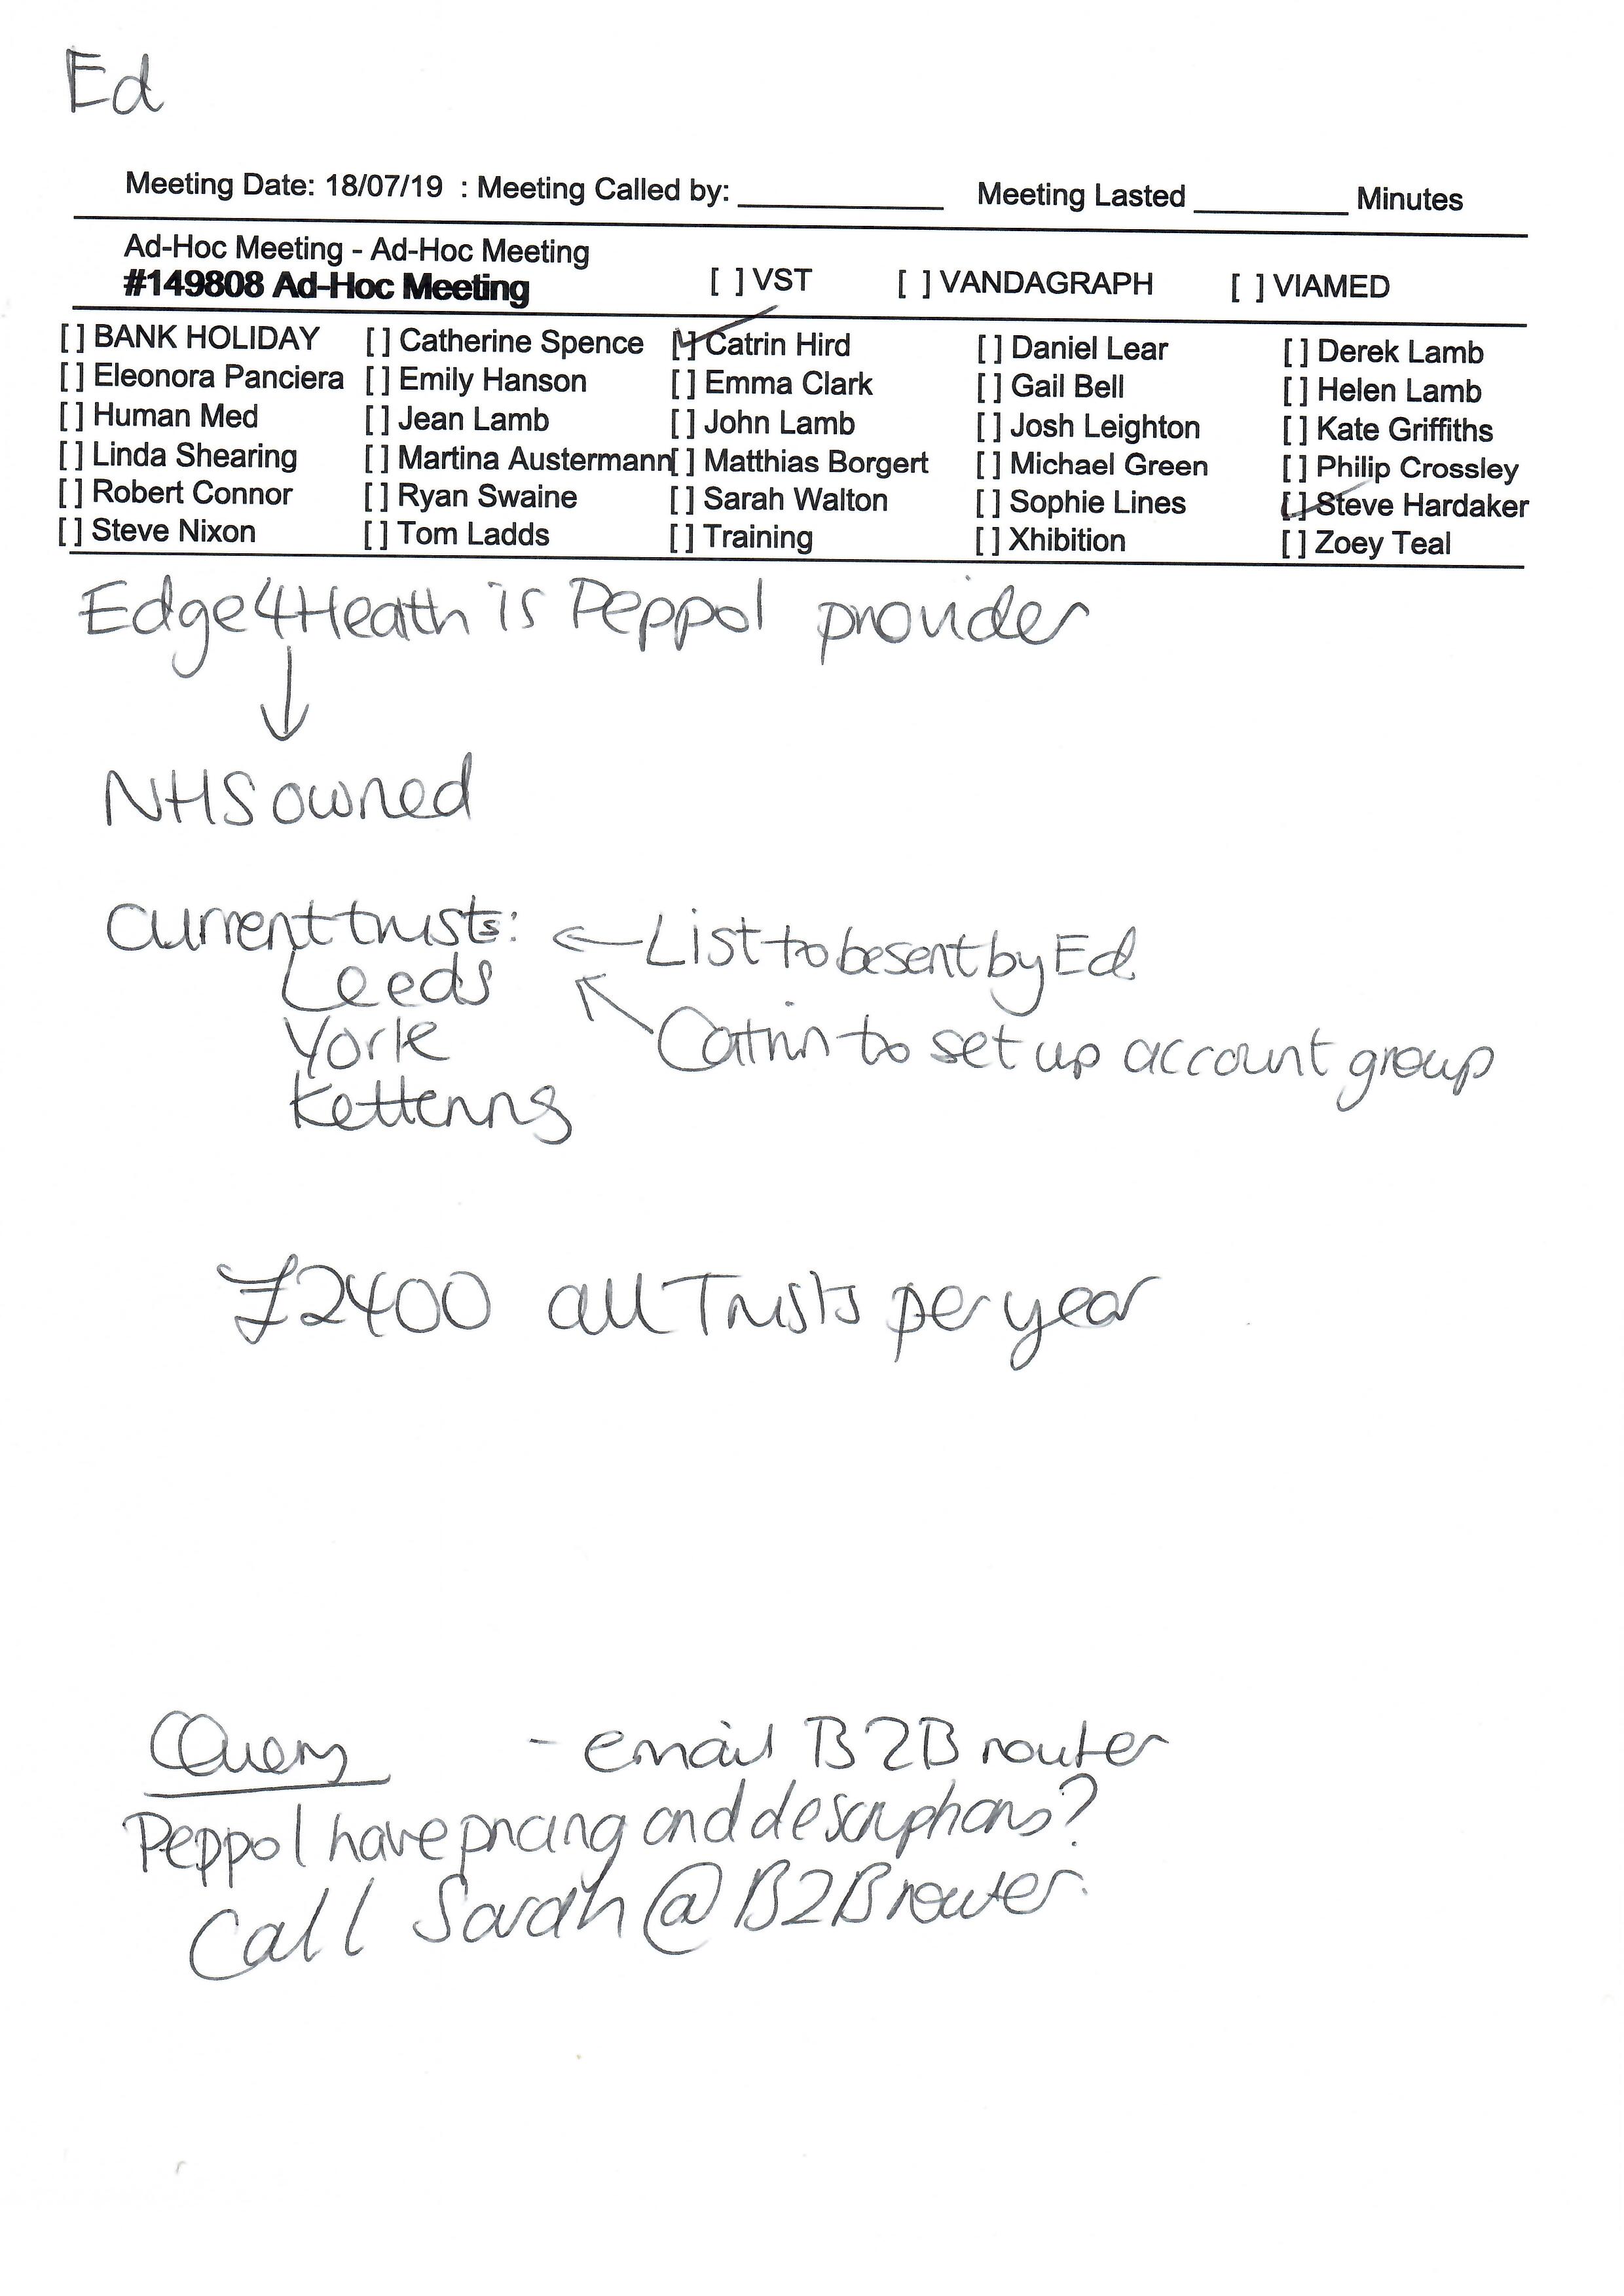 Ed
Meeting Date: 18/07/19 : Meeting Called by: ____________ Meeting Lasted _________ Minutes
Ad-Hoc Meeting - Ad-Hoc Meeting
#149808 Ad-Hoc Meeting [ ] VST [ ] VANDAGRAPH [ ] VIAMED
[ ] BANK HOLIDAY [ ] Catherine Spence [✓] Catrin Hird [ ] Daniel Lear [ ] Derek Lamb
[ ] Eleonora Panciera [ ] Emily Hanson [ ] Emma Clark [ ] Gail Bell [ ] Helen Lamb
[ ] Human Med [ ] Jean Lamb [ ] John Lamb [ ] Josh Leighton [ ] Kate Griffiths
[ ] Linda Shearing [ ] Martina Austermann [ ] Matthias Borgert [ ] Michael Green [ ] Philip Crossley
[ ] Robert Connor [ ] Ryan Swaine [ ] Sarah Walton [ ] Sophie Lines [✓] Steve Hardaker
[ ] Steve Nixon [ ] Tom Ladds [ ] Training [ ] Xhibition [ ] Zoey Teal
Edge4Heath is Peppol provider
↓
NHS owned
Current trusts: ← List to be sent by Ed
Leeds
York Catrin to set up account group
Kettering
£2400 all Trusts per year
Query - email B2B router
Peppol have pricing and descriptions?
Call Sarah @ B2B router.